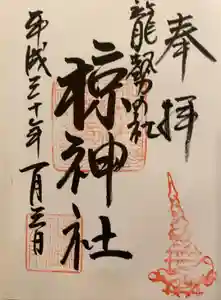 奉拝
龍勢の社
椋神社
平成三十年一月三日